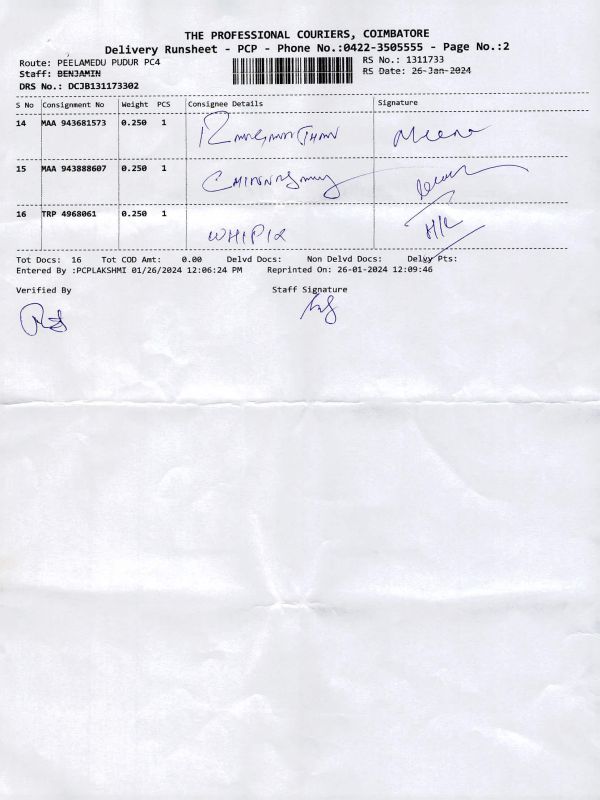 THE PROFESSIONAL COURIERS, COIMBATORE
Delivery Runsheet - PCP - Phone No.:0422-3505555 - Page No.:2
Route: PEELAMEDU PUDUR PC4
RS No.: 1311733
Staff: BENJAMIN
RS Date: 26-Jan-2024
DRS No.: DCJB131173302
S No Consignment No Weight PCS Consignee Details Signature
14 MAA 943681573 0.250 1 Meena
15 MAA 943888607 0.250 1
16 TRP 4968061 0.250 1 H/R
Tot Docs: 16 Tot COD Amt: 0.00 Delvd Docs: Non Delvd Docs: Delvy Pts:
Entered By :PCPLAKSHMI 01/26/2024 12:06:24 PM Reprinted On: 26-01-2024 12:09:46
Verified By Staff Signature